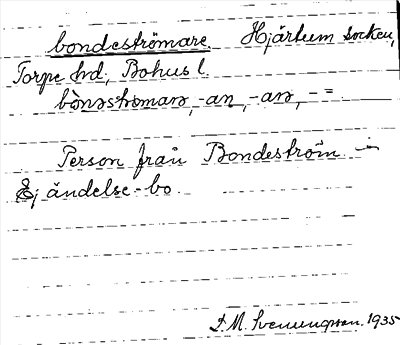 bondeströmare. Hjärtum socken,
Torpe hd, Bohus l.
bònəströmarə, -an, -arə, - =
Person från Bondeström –
Ej ändelse -bo.
F. M. Svenungsson. 1935